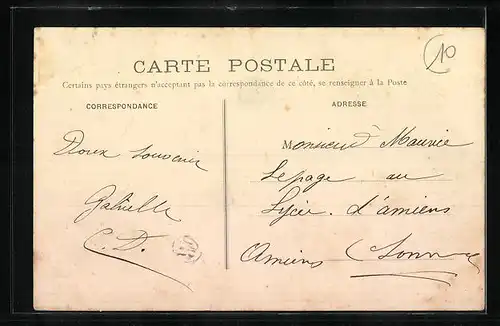 CARTE POSTALE
10
Certains pays étrangers n'acceptant pas la correspondance de ce côté, se renseigner à la Poste
CORRESPONDANCE
Doux souvenir
Gabrielle
C. D.
ADRESSE
Monsieur Maurice
Lepage au
Lycée d'amiens
Amiens (Somme